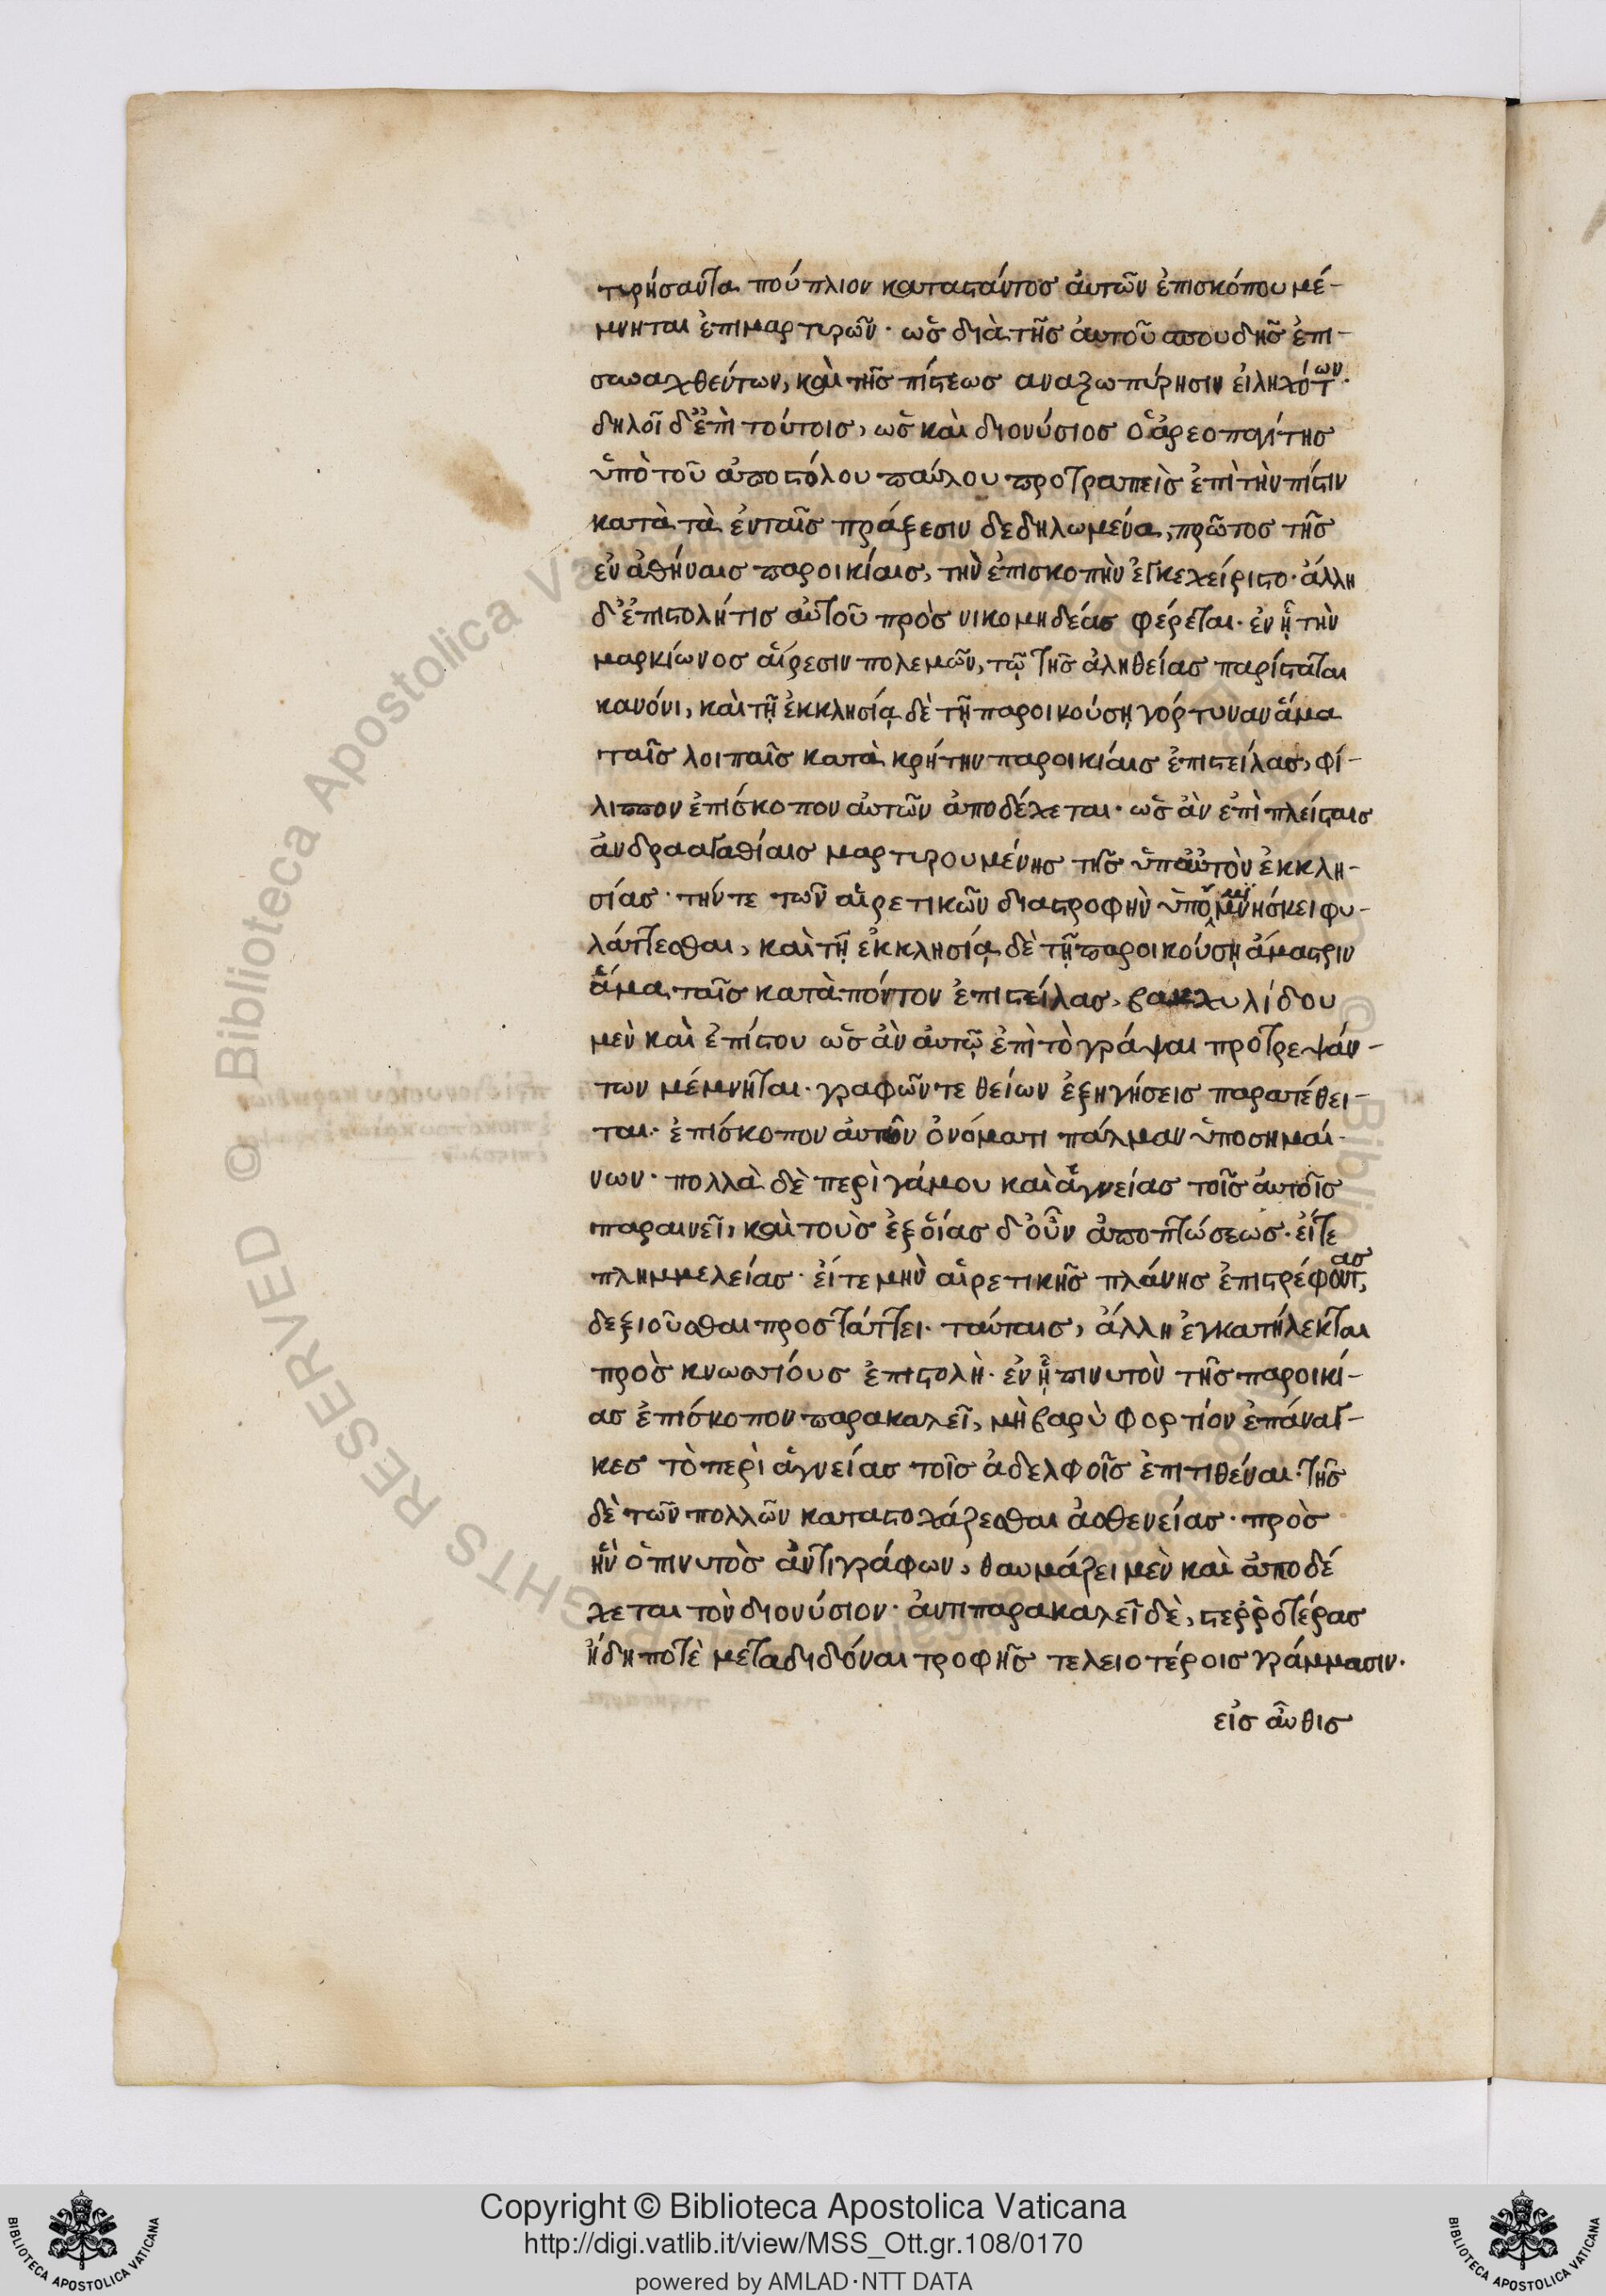 τυρήσαντα πούπλιον καταστάντος ἀυτῶν ἐπισκόπου μέ-
μνηται ἐπιμαρτυρῶν· ὡς διὰ τῆς ἀυτοῦ σπουδῆς ἐπι-
συναχθέντων, καὶ τῆς πίστεως αναζωπύρησιν ἐιληχότων·
δηλοῖ δ' ἐπὶ τούτοις, ὡς καὶ διονύσιος ὁ ἀρεοπαγίτης
ὑπὸ τοῦ ἀποστόλου παύλου προτραπεὶς ἐπὶ τὴν πίστιν
κατὰ τὰ ἐν ταῖς πράξεσιν δεδηλωμένα, πρῶτος τῆς
ἐν ἀθήναις παροικίαις, τὴν ἐπισκοπὴν ἐγκεχείριστο· ἄλλη
δ' ἐπιστολή τις αὐτοῦ πρὸς νικομηδέας φέρεται· ἐν ᾗ τὴν
μαρκίωνος αἵρεσιν πολεμῶν, τῷ τῆς ἀληθείας παρίσταται
κανόνι, καὶ τῇ ἐκκλησίᾳ δὲ τῇ παροικούσῃ γόρτυναν ἅμα
ταῖς λοιπαῖς κατὰ κρήτην παροικίαις ἐπιστείλας, φί-
λιππον ἐπίσκοπον ἀυτῶν ἀποδέχεται· ὡς ἂν ἐπὶ πλείσταις
ἀνδραγαθίαις μαρτυρουμένης τῆς ὑπ' ἀυτὸν ἐκκλη-
σίας· τήν τε τῶν αἱρετικῶν διαστροφὴν ὑπομιμνήσκει φυ-
λάττεσθαι, καὶ τῇ ἐκκλησίᾳ δὲ τῇ παροικούσῃ ἄμαστριν
ἅμα ταῖς κατὰ πόντον ἐπιστείλας, βακχυλίδου
μὲν καὶ ἐπίστου ὡς ἂν ἀυτῷ ἐπὶ τὸ γράψαι προτρεψάν-
των μέμνηται· γραφῶν τε θείων ἐξηγήσεις παρατέθει-
ται· ἐπίσκοπον ἀυτῶν ὀνόματι πάλμαν ὑποσημαί-
νων· πολλὰ δὲ περὶ γάμου καὶ ἁγνείας τοῖς ἀυτοῖς
παραινεῖ, καὶ τοὺς ἐξ οἵας δ' οὖν ἀποπτώσεως· εἴτε
πλημμελείας· εἴτε μὴν αἱρετικῆς πλάνης ἐπιστρέφοντας,
δεξιοῦσθαι προστάττει· ταύταις, ἄλλη ἐγκατήλεκται
πρὸς κνωσσίους ἐπιστολὴ· ἐν ᾗ πινυτὸν τῆς παροικί-
ας ἐπίσκοπον παρακαλεῖ, μὴ βαρὺ φορτίον ἐπάναγ-
κες τὸ περὶ ἁγνείας τοῖς ἀδελφοῖς ἐπιτιθέναι· τῆς
δὲ τῶν πολλῶν καταστοχάζεσθαι ἀσθενείας· πρὸς
ἣν ὁ πινυτὸς ἀντιγράφων, θαυμάζει μὲν καὶ ἀποδέ
χεται τὸν διονύσιον· ἀντιπαρακαλεῖ δὲ, στεῤῥοτέρας
ἤδη ποτὲ μεταδιδόναι τροφῆς τελειοτέροις γράμμασιν·
εἰς αὖθις
Copyright © Biblioteca Apostolica Vaticana
http://digi.vatlib.it/view/MSS_Ott.gr.108/0170
powered by AMLAD·NTT DATA
BIBLIOTECA APOSTOLICA VATICANA
BIBLIOTECA APOSTOLICA VATICANA